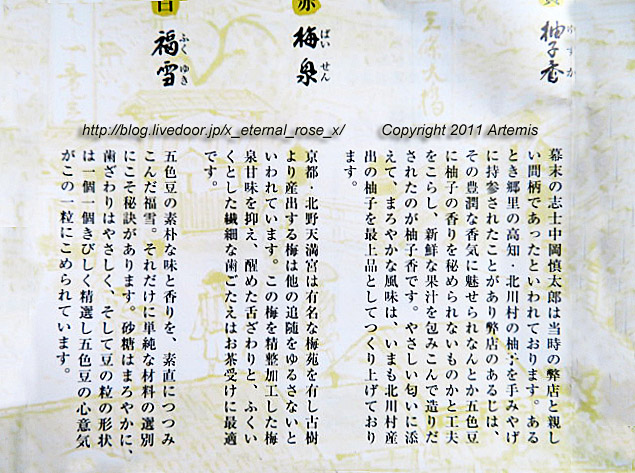 柚子香
ゆずか
幕末の志士中岡慎太郎は当時の弊店と親し
い間柄であったといわれております。ある
とき郷里の高知・北川村の柚子を手みやげ
に持参されたことがあり弊店のあるじは、
その豊潤な香気に魅せられなんとか五色豆
に柚子の香りを秘められないものかと工夫
をこらし、新鮮な果汁を包みこんで造りだ
されたのが柚子香です。やさしい匂いに添
えて、まろやかな風味は、いまも北川村産
出の柚子を最上品としてつくり上げており
ます。
赤
梅泉
ばいせん
京都・北野天満宮は有名な梅苑を有し古樹
より産出する梅は他の追随をゆるさないと
いわれています。この梅を精整加工した梅
泉甘味を抑え、醒めた舌ざわりと、ふくい
くとした繊細な歯ごたえはお茶受けに最適
です。
白
福雪
ふくゆき
五色豆の素朴な味と香りを、素直につつみ
こんだ福雪。それだけに単純な材料の選別
にこそ秘訣があります。砂糖はまろやかに、
歯ざわりはやさしく、そして豆の粒の形状
は一個一個きびしく精選し五色豆の心意気
がこの一粒にこめられています。
http://blog.livedoor.jp/x_eternal_rose_x/ Copyright 2011 Artemis